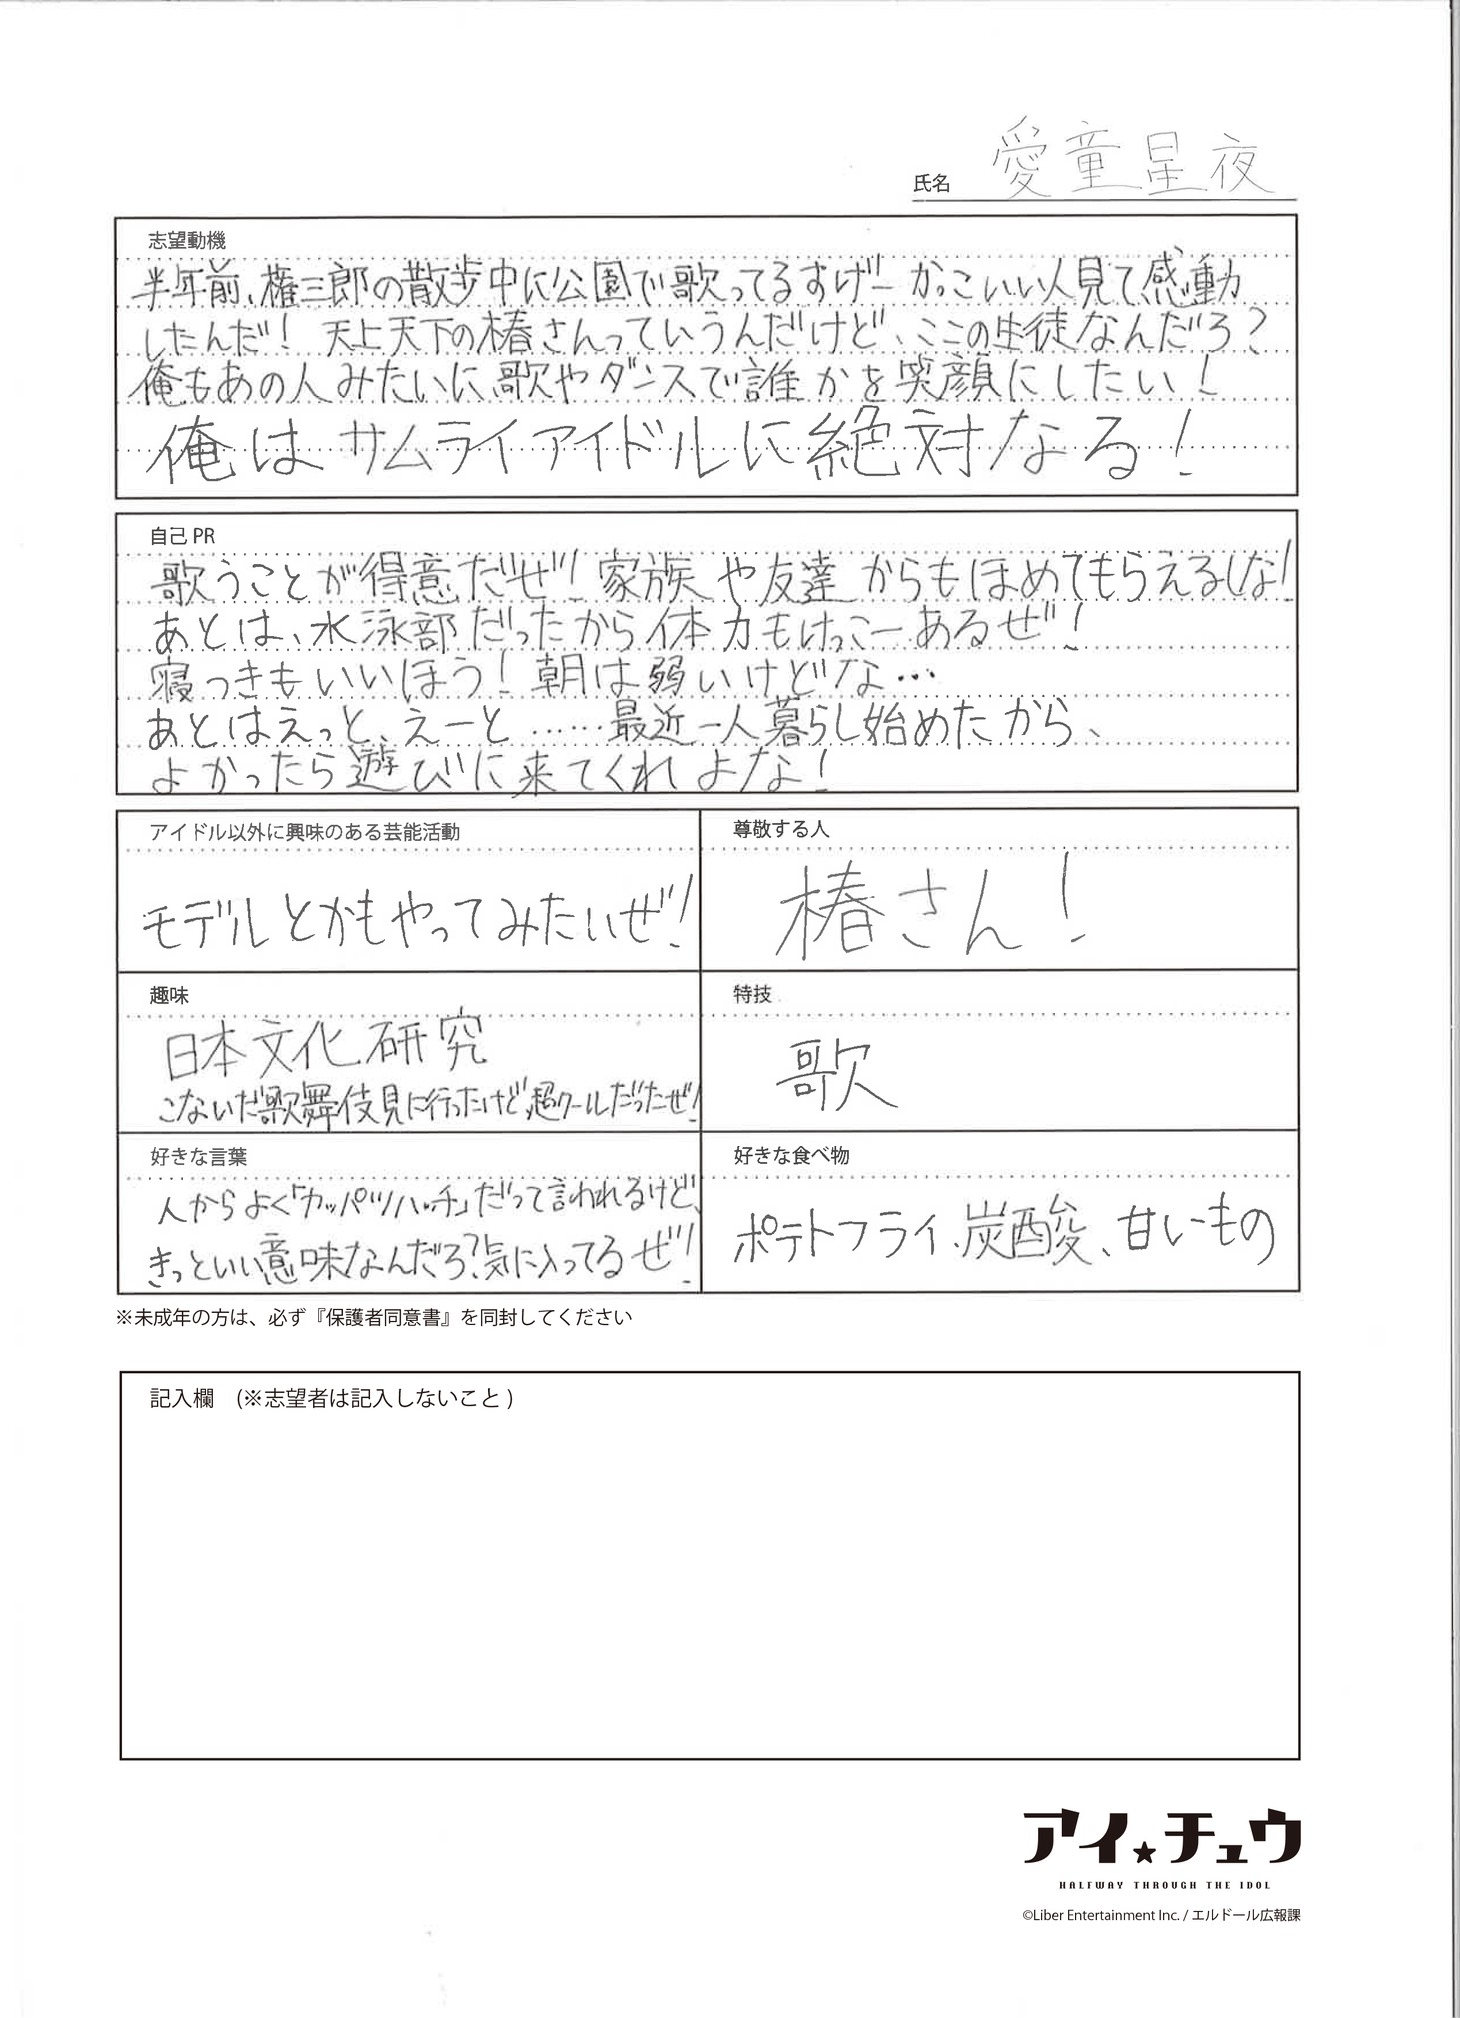 氏名 愛童星夜
志望動機
半年前、権三郎の散歩中に公園で歌ってるすげー かっこいい人見て感動
したんだ! 天上天下の椿さんっていうんだけど、ここの生徒なんだろ?
俺もあの人みたいに歌やダンスで誰かを笑顔にしたい!
俺はサムライアイドルに絶対なる!
自己 PR
歌うことが得意だぜ! 家族や友達からもほめてもらえるしな!
あとは、水泳部だったから体力もけっこーあるぜ!
寝つきもいいほう! 朝は弱いけどな…
あとはえっと、えーと……最近一人暮らし始めたから、
よかったら遊びに来てくれよな!
アイドル以外に興味のある芸能活動
モデルとかもやってみたいぜ!
尊敬する人
椿さん!
趣味
日本文化研究
こないだ歌舞伎見に行ったけど、超クールだったぜ!
特技
歌
好きな言葉
人からよく「カッパツハッチ」だって言われるけど、
きっといい意味なんだろ?気に入ってるぜ!
好きな食べ物
ポテトフライ、炭酸、甘いもの
※未成年の方は、必ず『保護者同意書』を同封してください
記入欄 (※志望者は記入しないこと)
アイ★チュウ
HALFWAY THROUGH THE IDOL
©Liber Entertainment Inc. / エルドール広報課